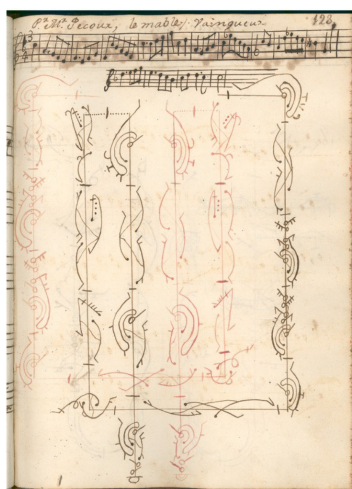 Pr. Mr. Pecour, le mables Vainqueur 128
1